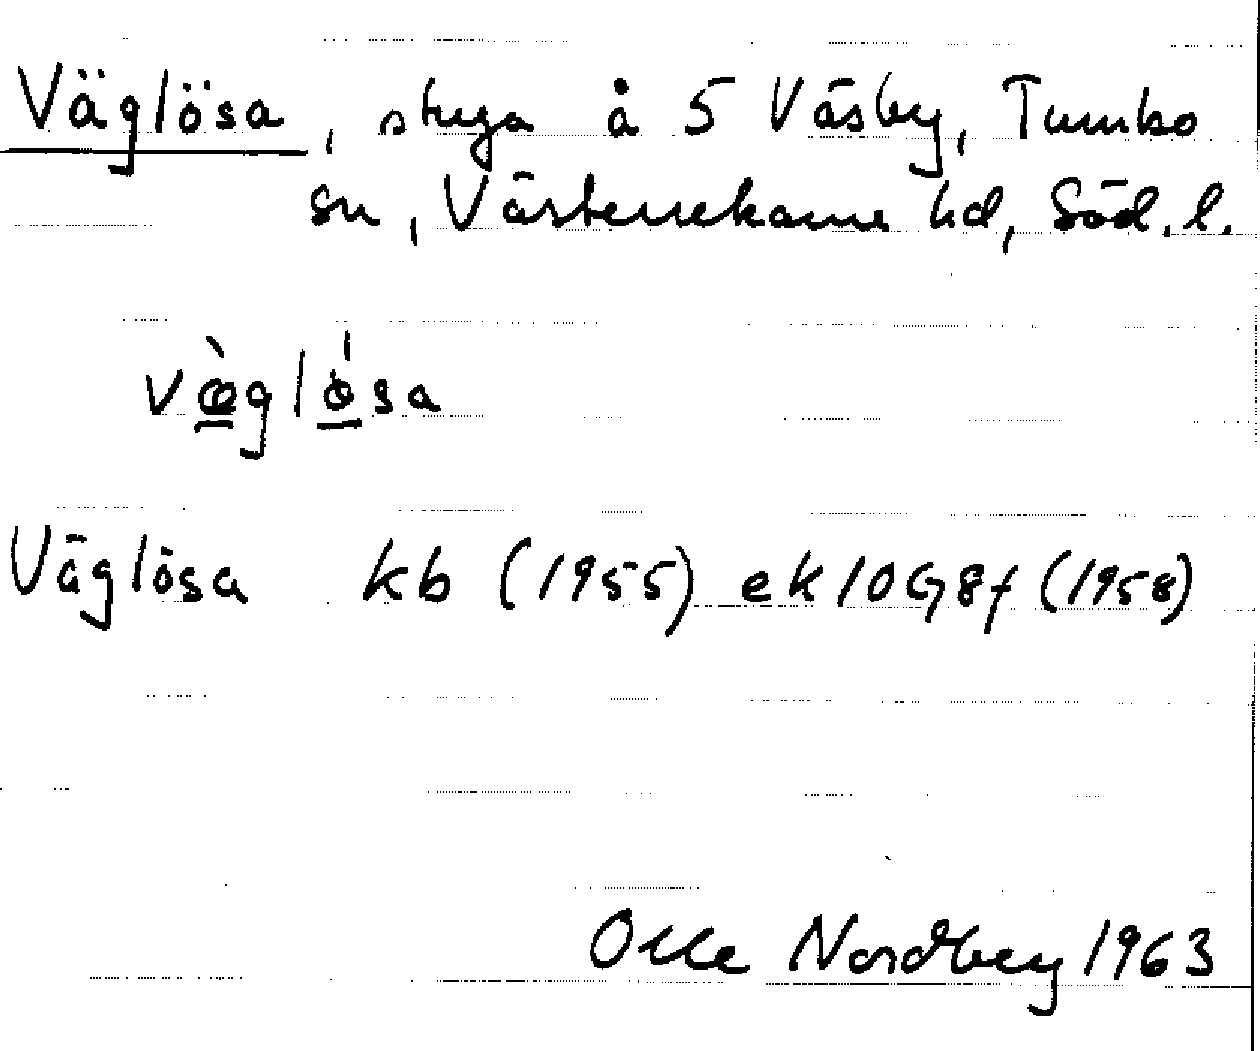 Väglösa, stuga å 5 Väsby, Tumbo
sn, Västerrekarne hd, Söd. l.
væ̀glǿsa
Väglösa kb (1955) ek 10G8f (1958)
Olle Nordberg 1963